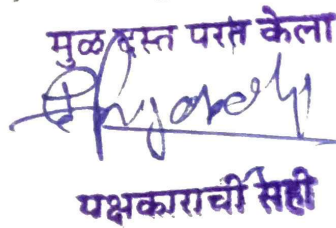 मुळ दस्त परत केला
पक्षकाराची सही